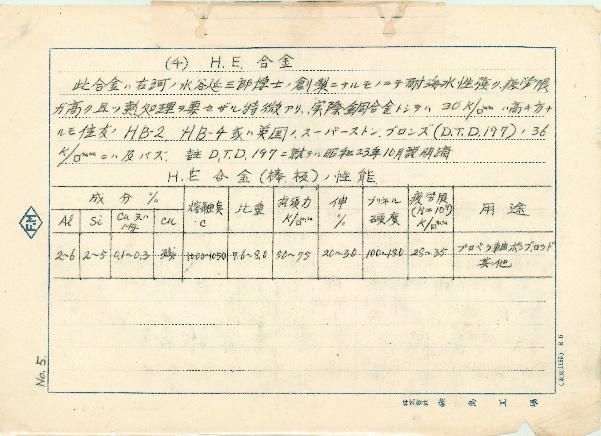 (4) H.E. 合金
此合金ハ右河ノ水谷延三郎博士ノ創製ニナルモノニテ耐海水性強ク、疲労限
ガ高ク且ツ熱処理ヲ要セザル特徴アリ、実際銅合金トシテハ 30 K/□mm ハ高キ方ナ
ルモ住友ノ HB-2 HB-4 或ハ英国ノ スーパーストン ブロンズ (D.T.D. 197) ノ 36
K/□mm ニハ及バズ 註 D.T.D. 197 ニ就テハ昭和23年10月説明済
H.E 合金(棒板)ノ性能
成分 %
Al Si Cu 熔融点 °C 比重 抗張力 K/□mm 伸 % ブリネル硬度 疲労限 K/□mm 用途
2~6 2~5 0.1~0.3 残 1000~1050 7.6~8.0 50~75 20~30 100~180 28~35 プロペラ軸
其他
No. 5
F.M
株式会社 工場
B5